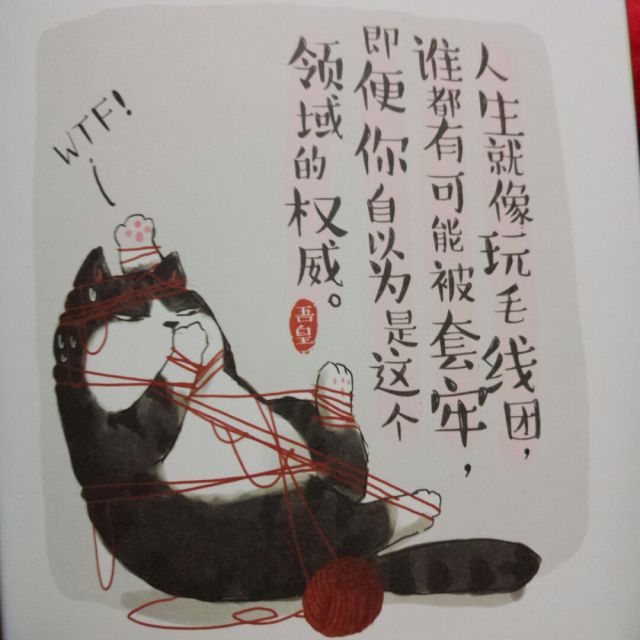 人生就像玩毛线团，
谁都有可能被套牢，
即便你自以为是这个
领域的权威。
吾皇
WTF!